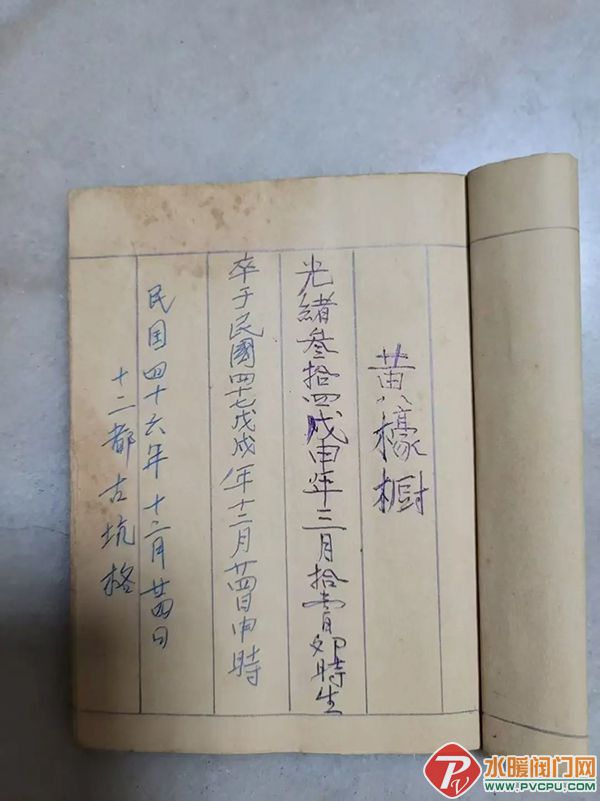 黄檺橱
光緒叁拾四戊申年三月拾壹日卯時生
卒于民國四十七戊戌年十二月廿四日申時
民国四十六年十二月廿四日
十二都古坑格
水暖阀门网
WWW.PVCPU.COM